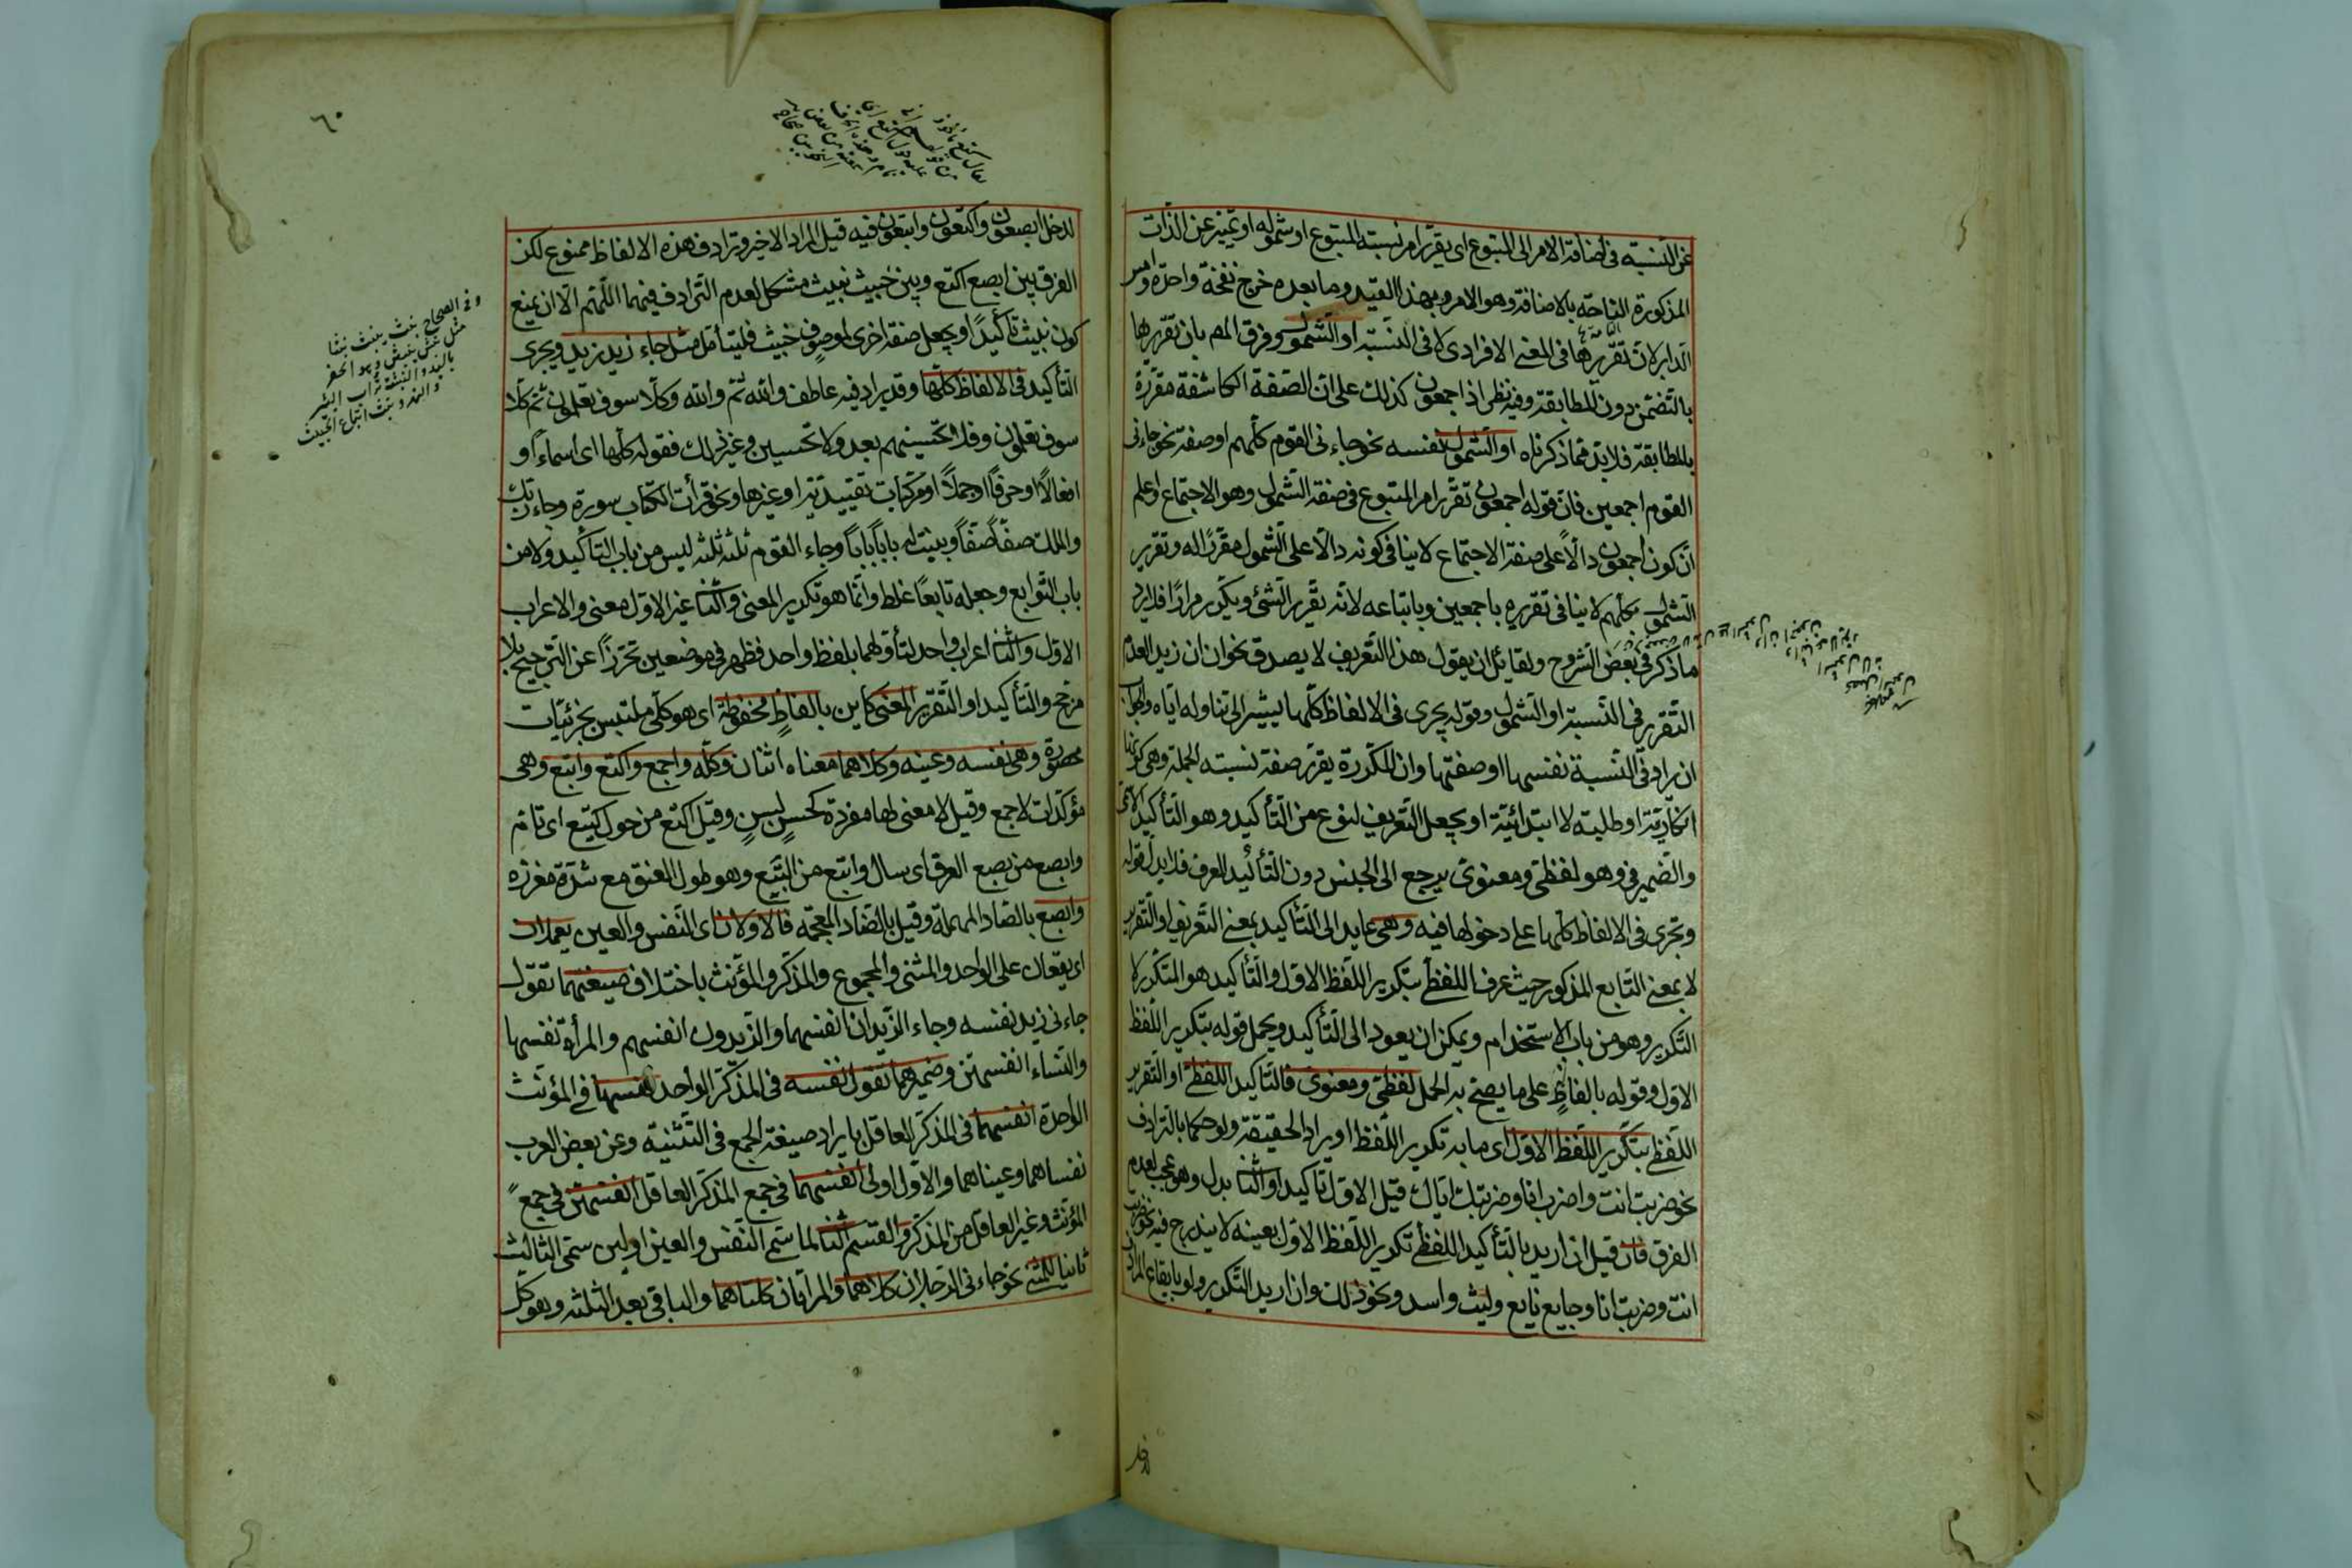 عن النسبة فى اضافة الامر الى المتبوع اى يقرر امر نسبته المتبوع او شموله او تميز عن الذات
المذكورة الناحة بالاضافة وهو الامر وبهذا القيد وما بعده خرج نفخة واحدة وامس
الدابر لان تقررها فى المعنى الافرادى لا فى النسبة او الشمول وفرق المص بان تقريرها
بالتضمن دون المطابقة وفيه نظر اذ اجمعون كذلك على ان الصفة الكاشفة مقررة
بالمطابقة فلا بد مما ذكرناه او الشمول بنفسه نحو جاءنى القوم كلهم او صفته نحو جاءنى
القوم اجمعين فان قوله اجمعون تقرر امر المتبوع فى صفة الشمول وهو الاجتماع واعلم
ان كون اجمعون دالا على صفة الاجتماع لا ينافى كونه دالا على الشمول مقررا له وتقرير
الشمول بكلهم لا ينافى تقريره باجمعين وباتباعه لانه يقرر الشئ ويكرر مرارا فلا يرد
ما ذكر فى بعض الشروح ولقائل ان يقول هذا التعريف لا يصدق نحو ان ان زيد العدم
التقرير فى النسبة او الشمول وقوله يجرى فى الالفاظ كلها يشير الى تناوله اياه والجواب
ان يراد فى النسبة نفسها او صفتها وان المكررة يقرر صفة نسبته الجملة وهى كونها
انكارية او طلبية لا ابتدائية او يجعل التعريف لنوع من التأكيد وهو التأكيد الاسمى
والضمير فى وهو لفظى ومعنوى يرجع الى الجنس دون التأكيد المعرف فلا بد لقوله
وتجرى فى الالفاظ كلها على دخولها فيه وهى عايد الى التأكيد بمعنى التعريف او التقرير
لا بمعنى التابع المذكور حيث عرف اللفظى بتكرير اللفظ الاول والتأكيد هو المتكرر لا
التكرير وهو من باب الاستخدام ويمكن ان يعود الى التأكيد ويحمل قوله بتكرير اللفظ
الاول وقوله بالفاظ على ما يصح به الحمل لفظى ومعنوى فالتأكيد اللفظى او التقرير
اللفظى بتكرير اللفظ الاول اى ما به تكرير اللفظ او يراد الحقيقة ولو حكما بالترادف
نحو ضربت انت واضرب انا وضربتك اياك قيل الاول تأكيد والثانى بدل وهو عجب لعدم
الفرق فان قيل ان اريد بالتأكيد اللفظى تكرير اللفظ الاول بعينه لا يندرج فيه نحو ضربت
انت وضربت انا وجايع نايع وليث واسد ونحو ذلك وان اريد التكرير ولو بايقاع المرادف
٦٠
لدخل ابصعون واكتعون وابتعون فيه قيل المراد الاخير وترادف هذه الالفاظ ممنوع لكن
الفرق بين ابصع اكتع وبين خبيث نبيث مشكل لعدم الترادف فيهما اللهم الا ان يمنع
كون نبيث تأكيدا او يجعل صفة اخرى لموصوف خبيث فليتأمل مثل جاء زيد زيد ويجرى
التأكيد فى الالفاظ كلها وقد يراد فيه عاطف والله ثم والله وكلا سوف تعلمون ثم كلا
سوف تعلمون وفلا تحسبنهم بعد ولا تحسبن وغير ذلك فقوله كلها اى اسماء او
افعالا او حرفا او جملا او مركبات تقييدية او غيرها ونحو قرأت الكتاب سورة وجاء ربك
والملك صفا صفا وبينته بابا بابا وجاء القوم ثلثة ثلثة ليس من باب التأكيد ولا من
باب التوابع وجعله تابعا غلط وانما هو تكرير المعنى والثانى غير الاول معنى والاعراب
الاول والثانى اعراب واحد لتأولهما بلفظ واحد فظهر فى موضعين تحرزا عن الترجيح بلا
مرجح والتأكيد او التقرير المعنى كاين بالفاظ محفوظة اى هو كلى ملتبس بجزئيات
محصورة وهى نفسه وعينه وكلاهما معناه اثنان وكله واجمع واكتع وابتع وهى
مؤكدات لاجمع وقيل لا معنى لها مفردة كحسن بسن وقيل اكتع من حول كتيع اى تام
وابصع من بصع العرق اى سال وابتع من البتع وهو طول العنق مع شدة مغرزه
وابصع بالصاد المهملة وقيل بالضاد المعجمة فالاولان اى النفس والعين يعمان
اى يقعان على الواحد والمثنى والمجموع والمذكر والمؤنث باختلاف صيغتهما تقول
جاءنى زيد نفسه وجاء الزيدان انفسهما والزيدون انفسهم والمرأة نفسها
والنساء انفسهن وضميرهما تقول نفسه فى المذكر الواحد نفسها فى المؤنث
الواحدة انفسهما فى المذكر العاقل بايراد صيغة الجمع فى التثنية وعن بعض العرب
نفساهما وعيناهما والاول اولى انفسهم فى جمع المذكر العاقل انفسهن فى جمع
المؤنث وغير العاقل من المذكر والقسم الثانى لما سمى النفس والعين اولين سمى الثالث
ثانيا للمثنى نحو جاءنى الرجلان كلاهما والمراتان كلتاهما والباقى بعد الثلثة وهو كل
وفى الصحاح نبث ينبث نبثا
مثل نبش ينبش وهو الحفر
باليد والنبيثة تراب البئر
والنهر ونبيث اتباع الخبيث